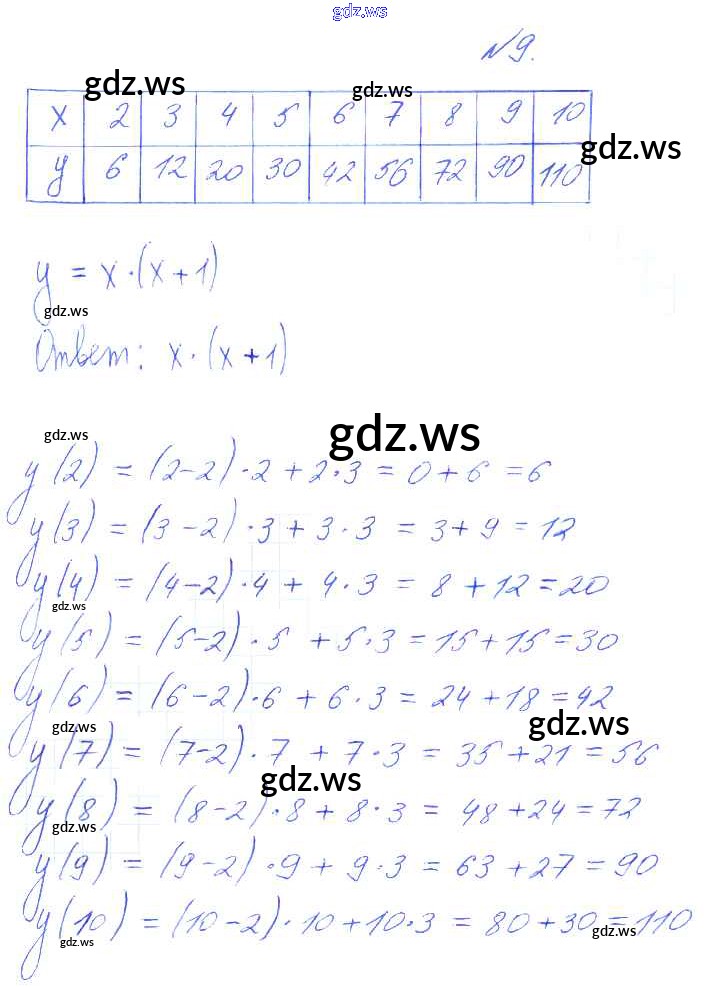 gdz.ws
№9.
gdz.ws
gdz.ws
x 2 3 4 5 6 7 8 9 10
y 6 12 20 30 42 56 72 90 110
gdz.ws
y = x·(x+1)
gdz.ws
Ответ: x·(x+1)
gdz.ws
gdz.ws
y(2) = (2-2)·2 + 2·3 = 0+6 = 6
y(3) = (3-2)·3 + 3·3 = 3+9 = 12
y(4) = (4-2)·4 + 4·3 = 8+12 = 20
gdz.ws
y(5) = (5-2)·5 + 5·3 = 15+15 = 30
y(6) = (6-2)·6 + 6·3 = 24+18 = 42
gdz.ws
gdz.ws
y(7) = (7-2)·7 + 7·3 = 35+21 = 56
gdz.ws
y(8) = (8-2)·8 + 8·3 = 48+24 = 72
gdz.ws
y(9) = (9-2)·9 + 9·3 = 63+27 = 90
y(10) = (10-2)·10+10·3 = 80+30 = 110
gdz.ws
gdz.ws